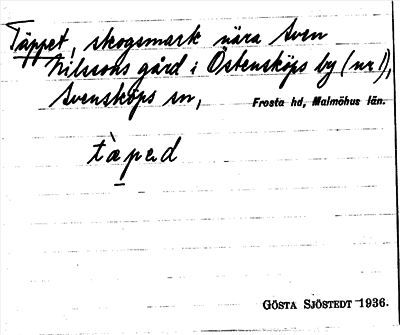 Täppet, skogsmark nära Sven
Nilssons gård i Östensköps by (nr 1),
Svensköps sn, Frosta hd, Malmöhus län.
tæ̀ped
GÖSTA SJÖSTEDT 1936.